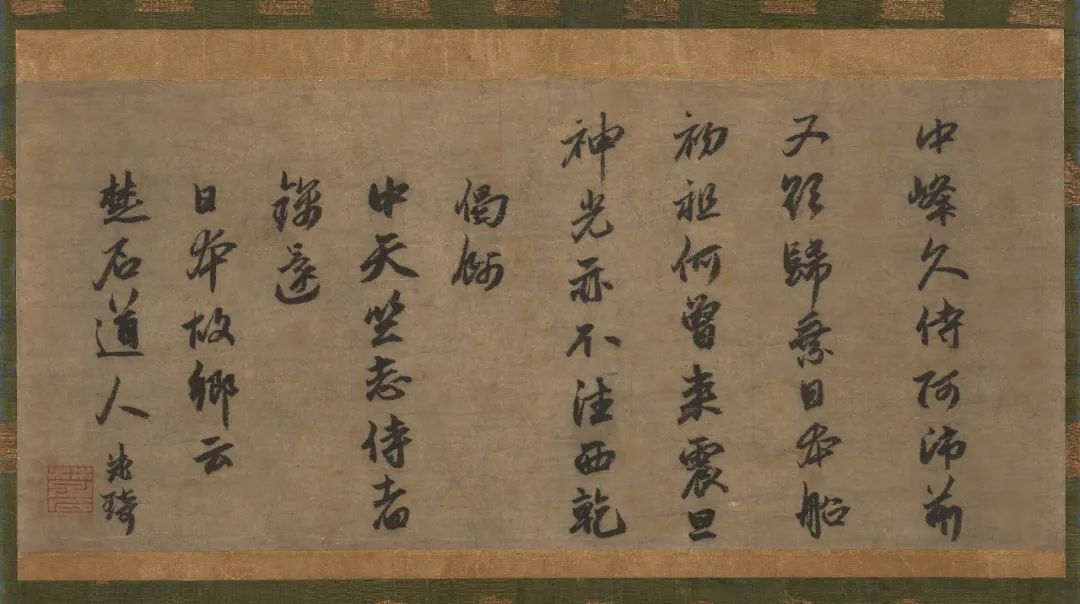 中峰久侍阿師前
又欲歸乘日本船
初祖何曾来震旦
神光亦不往西乾
偈餞
中天竺志侍者
錦還
日本故鄉云
楚石道人梵琦